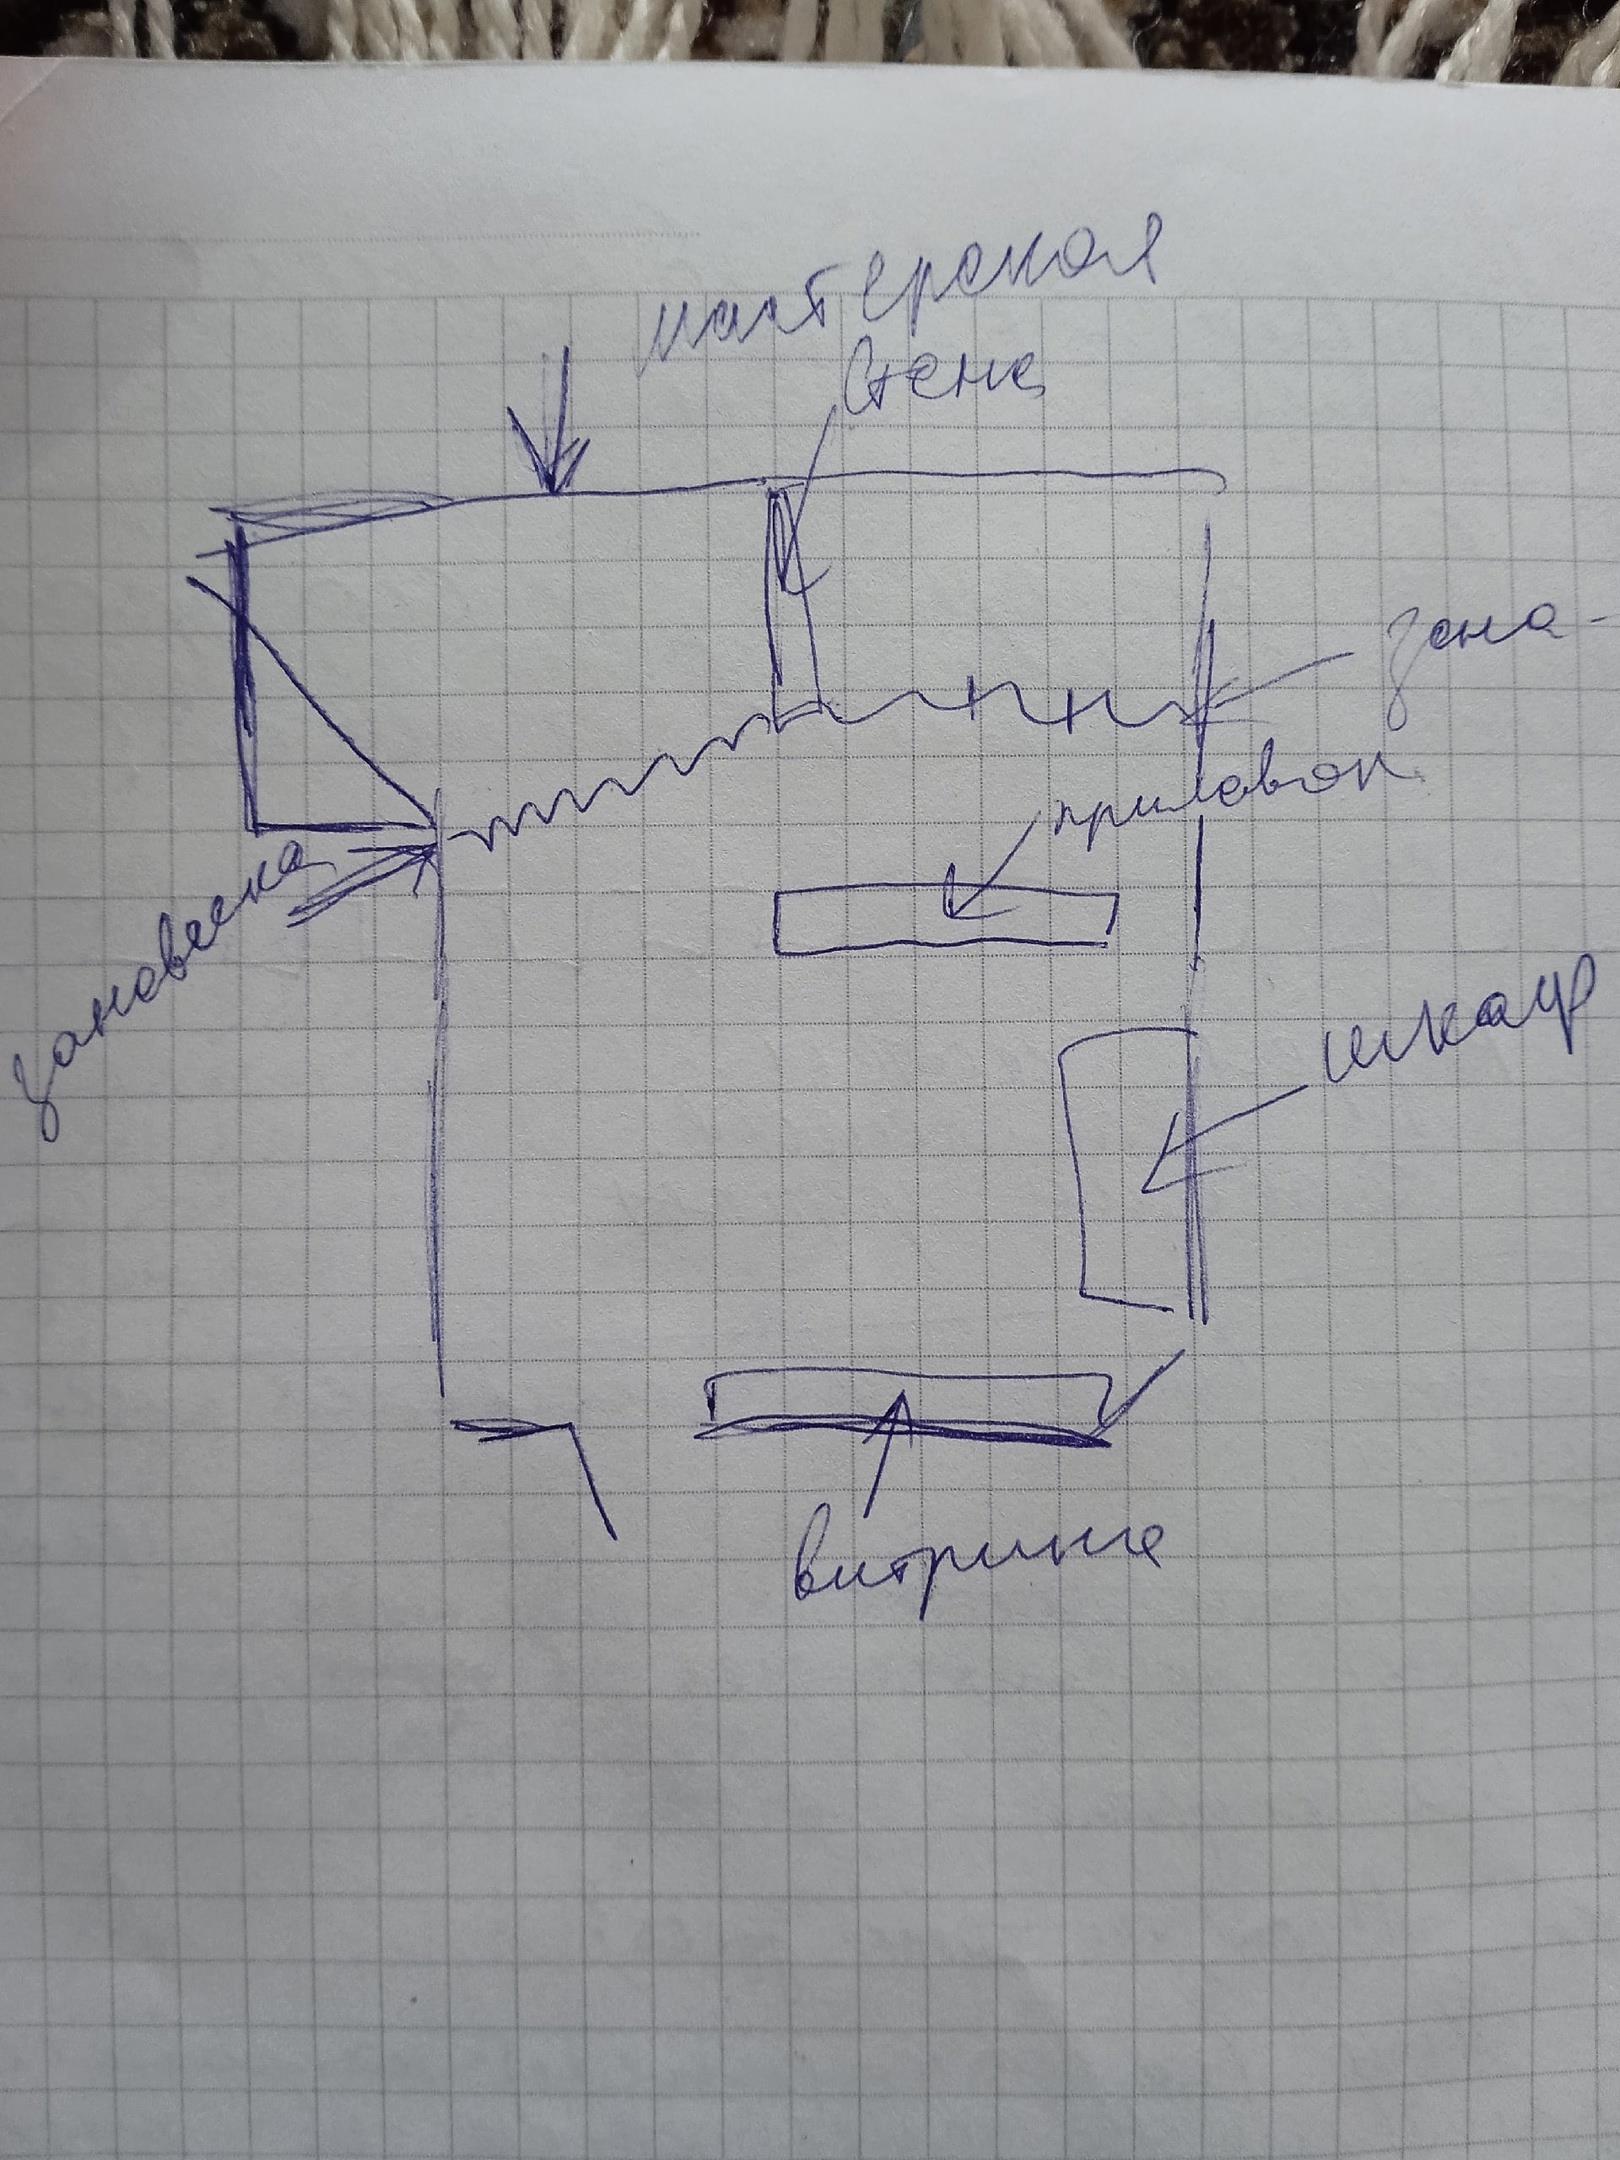 мастерская
стена
зана-
прилавок
занавеска
шкаф
витрина